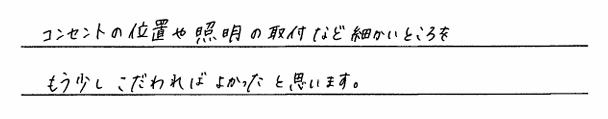 コンセントの位置や照明の取付など細かいところを
もう少しこだわればよかったと思います。